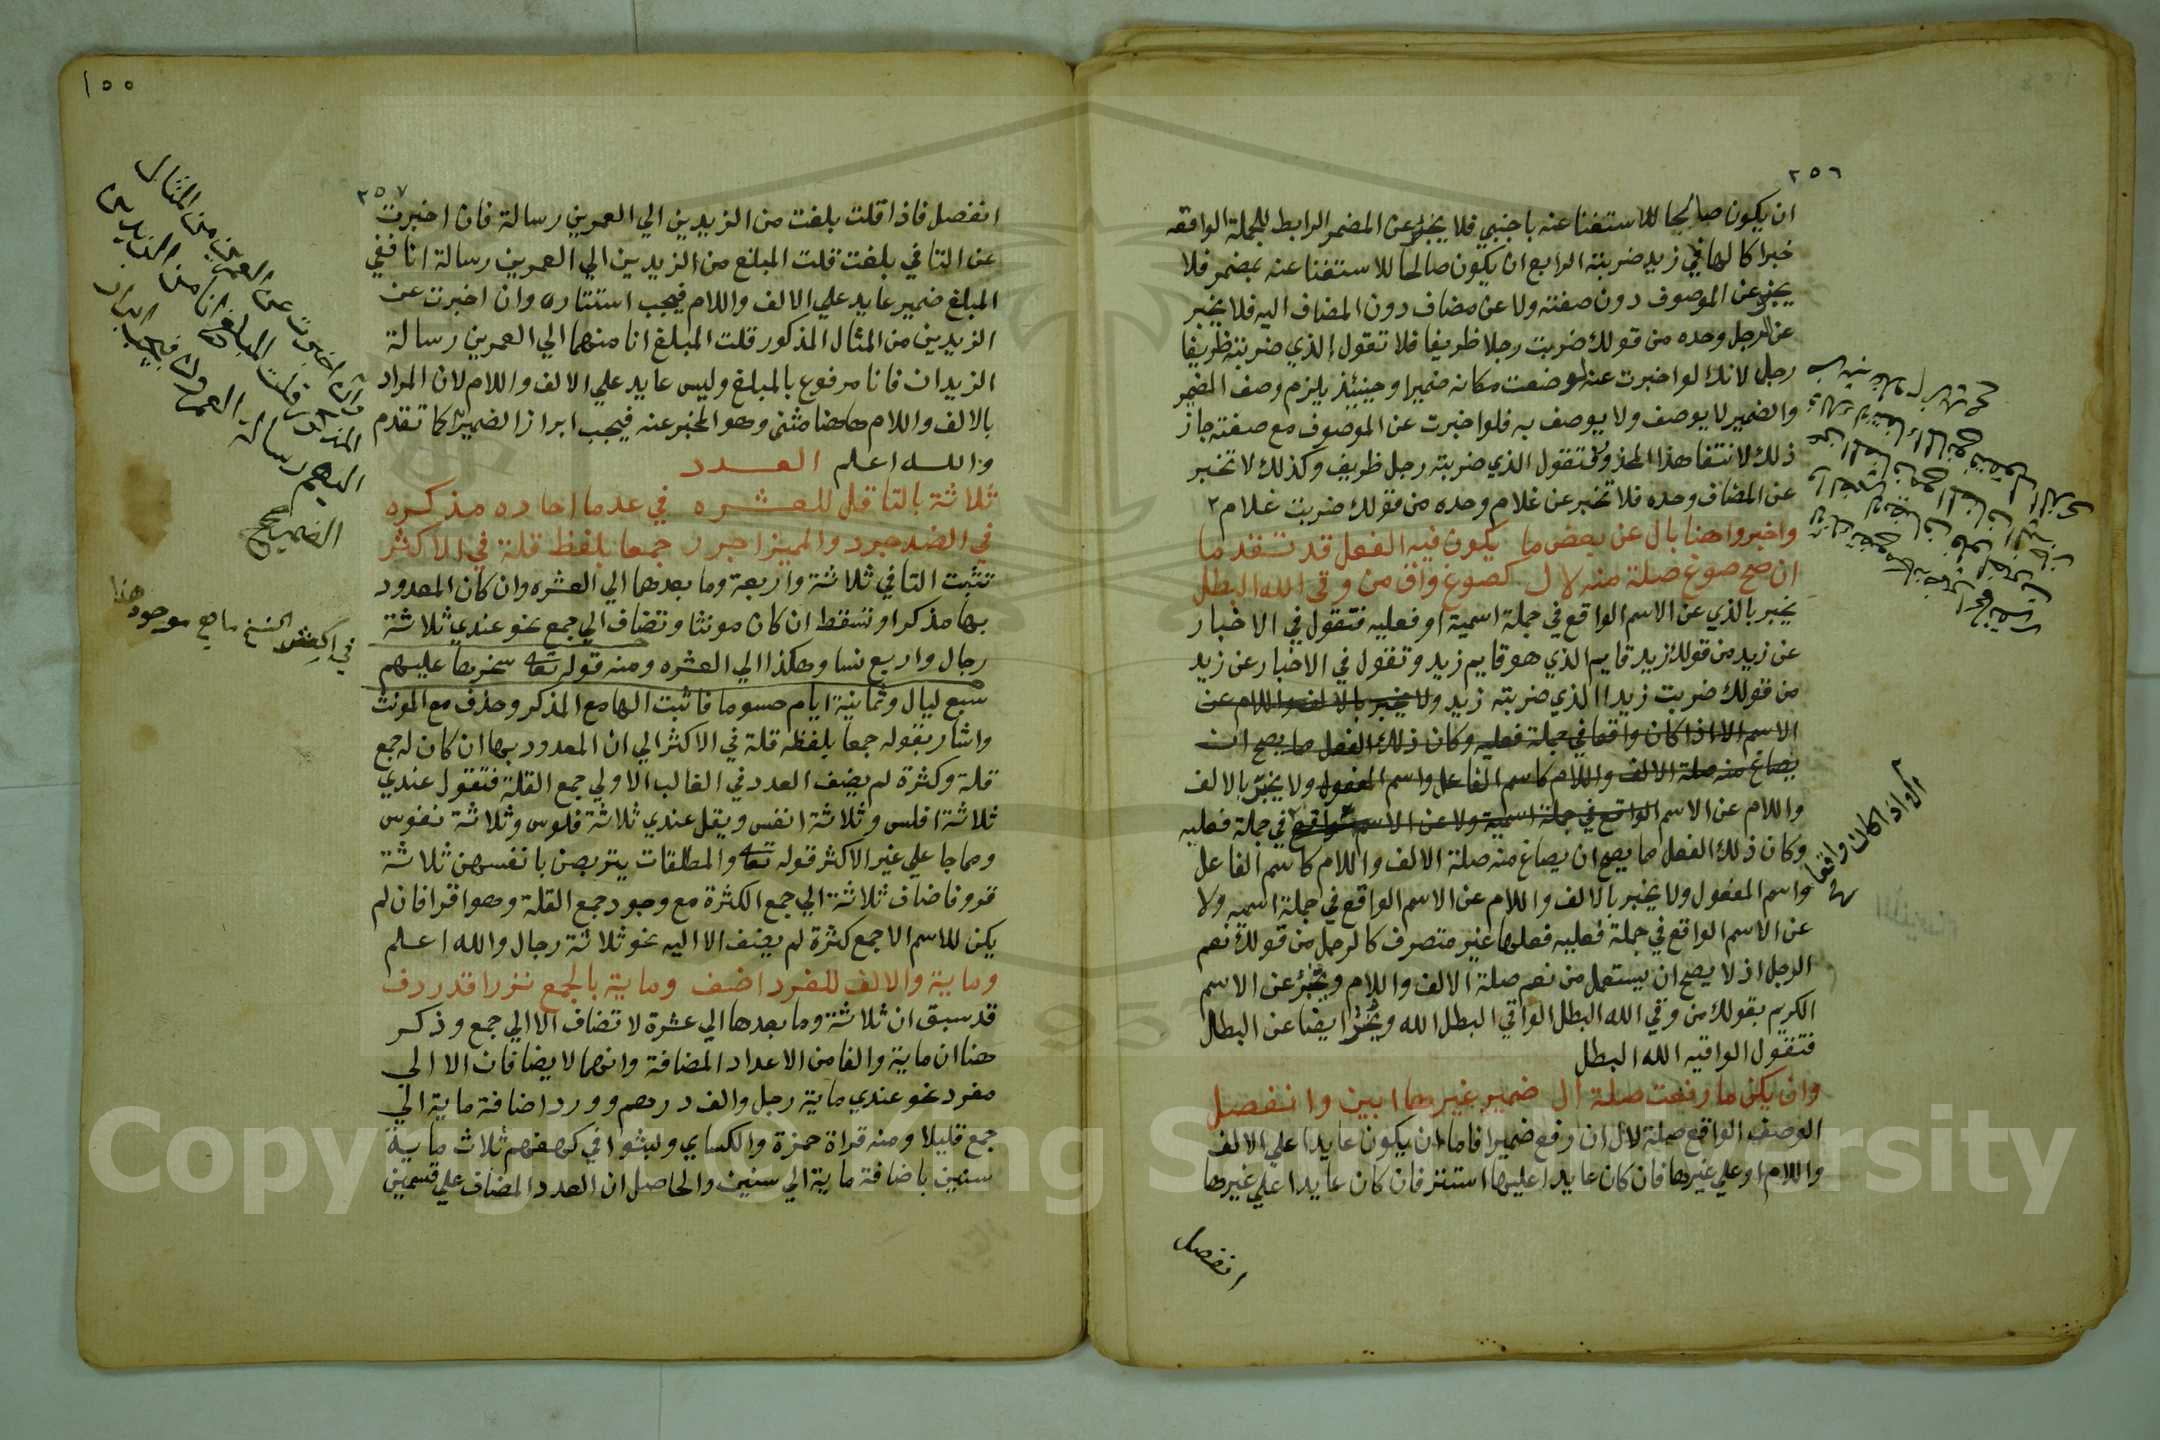 ٢٥٦
ان يكون صالحا للاستغنا عنه باجنبي فلا يخبر عن المضمر الرابط للجملة الواقعه
خبرا كالها في زيد ضربته الرابع ان يكون صالحا للاستغنا عنه بمضمر فلا
يخبر عن الموصوف دون صفته ولا عن مضاف دون المضاف اليه فلا يخبر
عن الرجل وحده من قولك ضربت رجلا ظريفا فلا تقول الذي ضربته ظريفا
رجل لانك لو اخبرت عنه لوضعت مكانه ضميرا وحينيذ يلزم وصف المضمر
والضمير لا يوصف ولا يوصف به فلو اخبرت عن الموصوف مع صفته جاز
ذلك لانتفا هذا المحذور فتقول الذي ضربته رجل ظريف وكذلك لا تخبر
عن المضاف وحده فلا تخبر عن غلام وحده من قولك ضربت غلام ٢
واخبروا هنا بال عن بعض ما يكون فيه الفعل قد تقدما
ان صح صوغ صلة منه لال كصوغ واق من وقى الله البطل
يخبر بالذي عن الاسم الواقع في جملة اسمية او فعليه فتقول في الاخبار
عن زيد من قولك زيد قايم الذي هو قايم زيد وتقول في الاخبار عن زيد
من قولك ضربت زيدا الذي ضربته زيد ولا يخبر بالالف واللام عن
الاسم الا اذا كان واقعا في جملة فعليه وكان ذلك الفعل مما يصح ان
يصاغ منه صلة الالف واللام كاسم الفاعل واسم المفعول ولا يخبر بالالف
واللام عن الاسم الواقع في جملة اسمية ولا عن الاسم الواقع في جملة فعليه
وكان ذلك الفعل مما يصح ان يصاغ منه صلة الالف واللام كاسم الفاعل
واسم المفعول ولا يخبر بالالف واللام عن الاسم الواقع في جملة اسميه ولا
عن الاسم الواقع في جملة فعليه فعلها غير متصرف كالرجل من قولك نعم
الرجل اذ لا يصح ان يستعمل من نعم صلة الالف واللام ويخبر عن الاسم
الكريم بقولك من وقي الله البطل الواقي البطل الله ويخبر ايضا عن البطل
فتقول الواقيه الله البطل
وان يكن ما رفعت صلة ال ضمير غيرها ابين وانفصل
الوصف الواقع صلة لال ان رفع ضميرا فاما ان يكون عايدا علي الالف
واللام او علي غيرها فان كان عايدا عليها استتر فان كان عايدا علي غيرها
انفصل
الا اذا كان واقعا
١٥٥
٢٥٧
انفصل فاذا قلت بلغت من الزيدين الي العمرين رسالة فان اخبرت
عن التا في بلغت قلت المبلغ من الزيدين الي العمرين رسالة انا ففي
المبلغ ضمير عايد علي الالف واللام فيجب استتاره وان اخبرت عن
الزيدين من المثال المذكور قلت المبلغ انا منهما الي العمرين رسالة
الزيدان فانا مرفوع بالمبلغ وليس عايد علي الالف واللام لان المراد
بالالف واللام هاهنا مثنى وهو المخبر عنه فيجب ابراز الضمير كما تقدم
والله اعلم العدد
ثلاثة بالتا قل للعشره في عد ما احاده مذكره
في الضد جرد والمميز اجرر جمعا بلفظ قلة في الاكثر
تثبت التا في ثلاثة واربعة وما بعدهما الي العشره وان كان المعدود
بها مذكرا وتسقط ان كان مونثا وتضاف الي جمع نحو عندي ثلاثة
رجال واربع نسا وهكذا الي العشره ومنه قوله تعا سخرها عليهم
سبع ليال وثمانية ايام حسوما فاثبت الها مع المذكر وحذف مع المونث
واشار بقوله جمعا بلفظ قلة في الاكثر الي ان المعدود بها ان كان له جمع
قلة وكثرة لم يضف العدد في الغالب الا الي جمع القلة فتقول عندي
ثلاثة افلس وثلاثة انفس ويقل عندي ثلاثة فلوس وثلاثة نفوس
ومما جا علي غير الاكثر قوله تعا والمطلقات يتربصن بانفسهن ثلاثة
قروء فاضاف ثلاثة الي جمع الكثرة مع وجود جمع القلة وهو اقرا فان لم
يكن للاسم الا جمع كثرة لم يضف الا اليه نحو ثلاثة رجال والله اعلم
وماية والالف للفرد اضف وماية بالجمع نزرا قد ردف
قد سبق ان ثلاثة وما بعدها الي عشرة لا تضاف الا الي جمع وذكر
هنا ان ماية والفا من الاعداد المضافة وانهما لا يضافان الا الي
مفرد نحو عندي ماية رجل والف درهم وورد اضافة ماية الي
جمع قليلا ومنه قراة حمزة والكساي ولبثوا في كهفهم ثلاث ماية
سنين باضافة ماية الي سنين والحاصل ان العدد المضاف علي قسمين
وان اخبرت عن العمرين من المثال
المذكور قلت المبلغ انا من الزيدين
اليهم رسالة العمرون فيجب ابراز
الضمير صح
في اكثر النسخ ما هو موجود هنا
Copyright © King Saud University